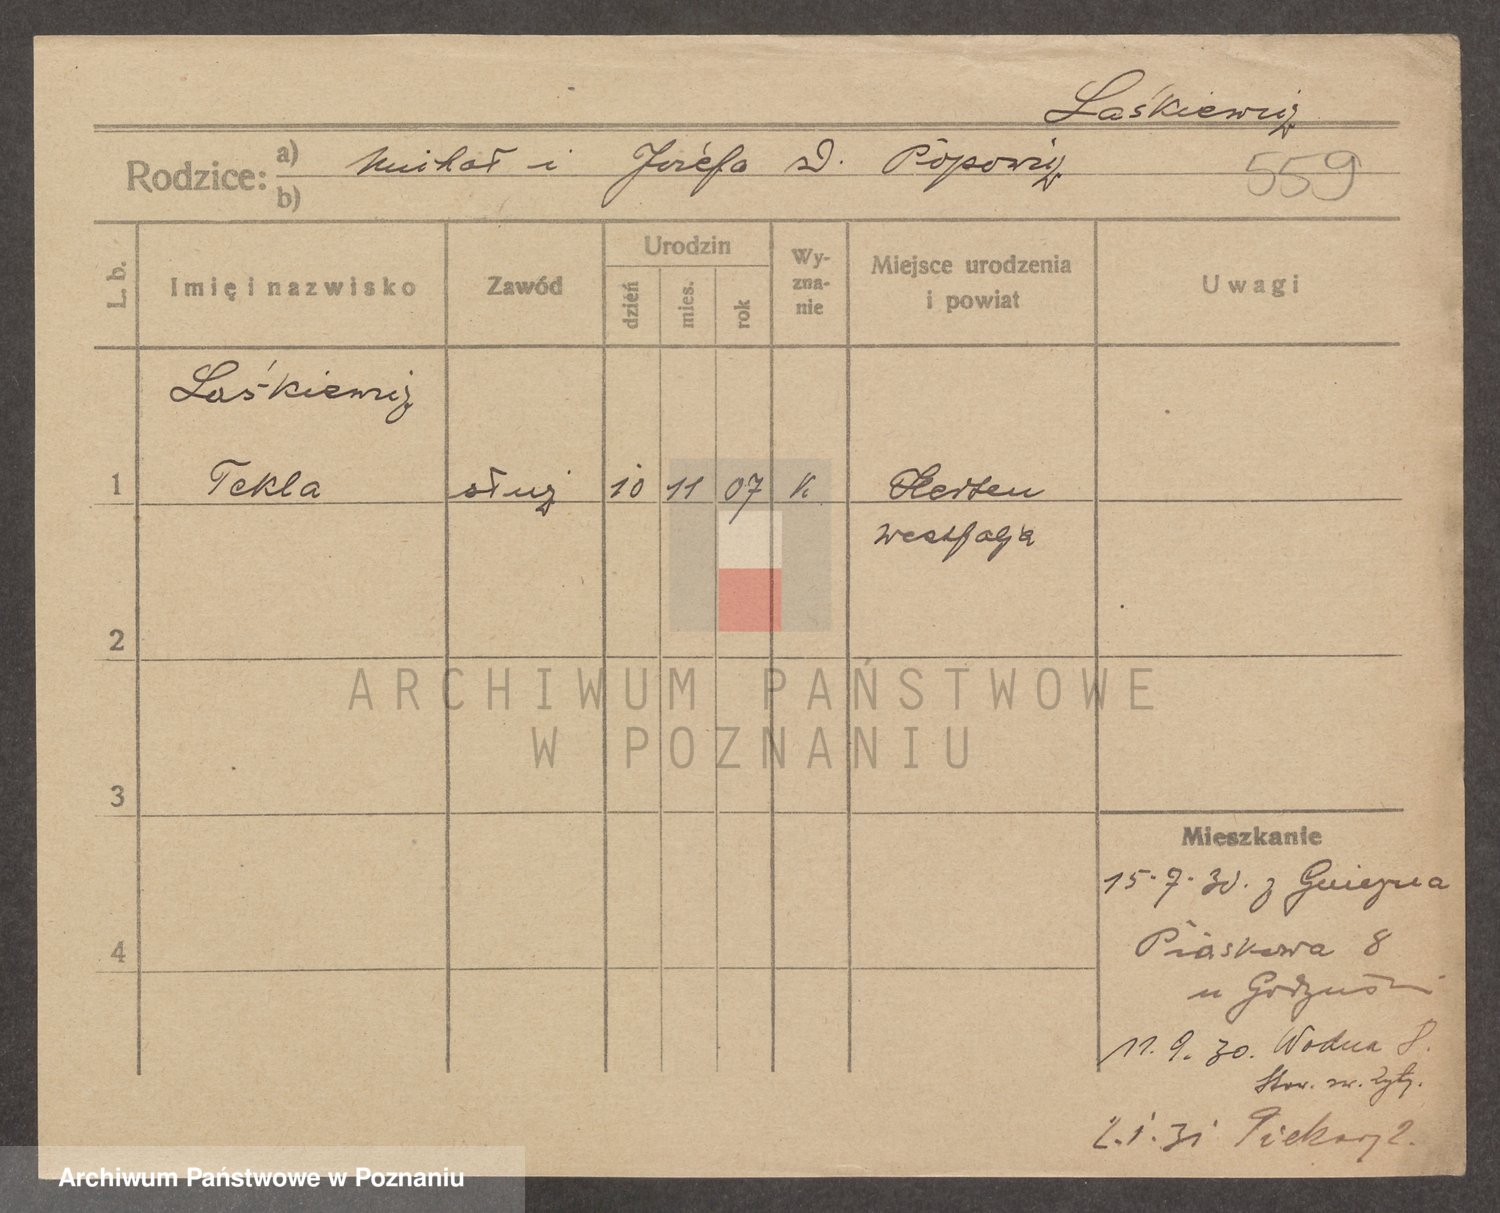 Laśkiewicz
Rodzice: a) Michał i Józefa z d. Popowicz
b)
559
L. b.
Imię i nazwisko
Zawód
Urodzin
dzień
mies.
rok
Wy-
zna-
nie
Miejsce urodzenia
i powiat
Uwagi
Laśkiewicz
1 Tekla służ 10 11 07 K Herten
Westfalja
2
3
4
ARCHIWUM PAŃSTWOWE
W POZNANIU
Mieszkanie
15.7.30. z Gniezna
Piaskowa 8
u
11.9.30. Wodna 8.
Stow. św. Zyty.
2.1.31 Piekary 2.
Archiwum Państwowe w Poznaniu